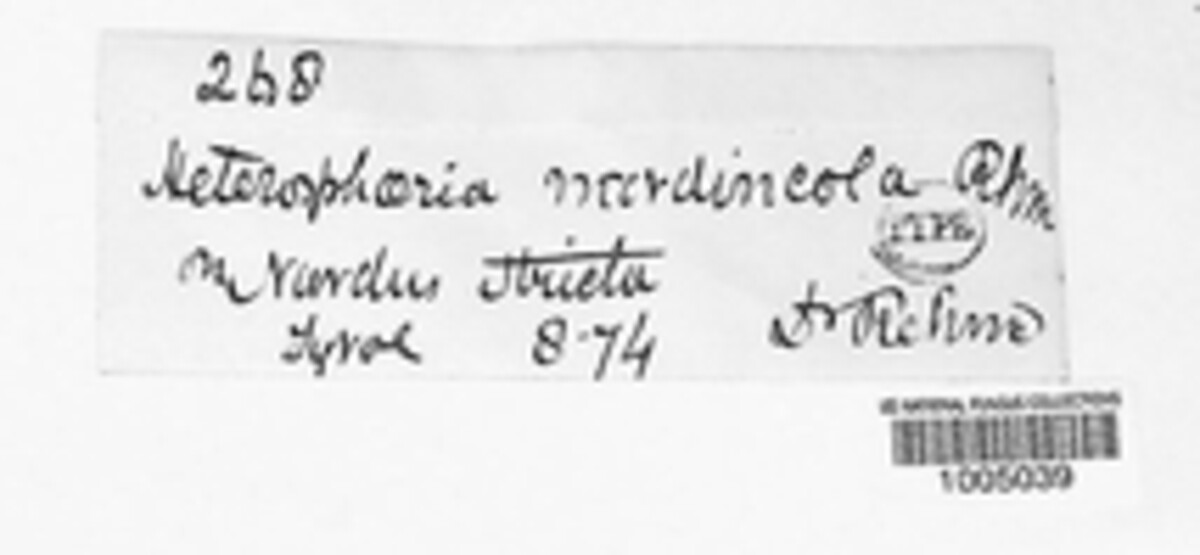 268
Heterosphaeria nardincola Rehm
TYPE
on Nardus stricta
Tyrol 8-74 Dr Rehm
US NATIONAL FUNGUS COLLECTIONS
1005039